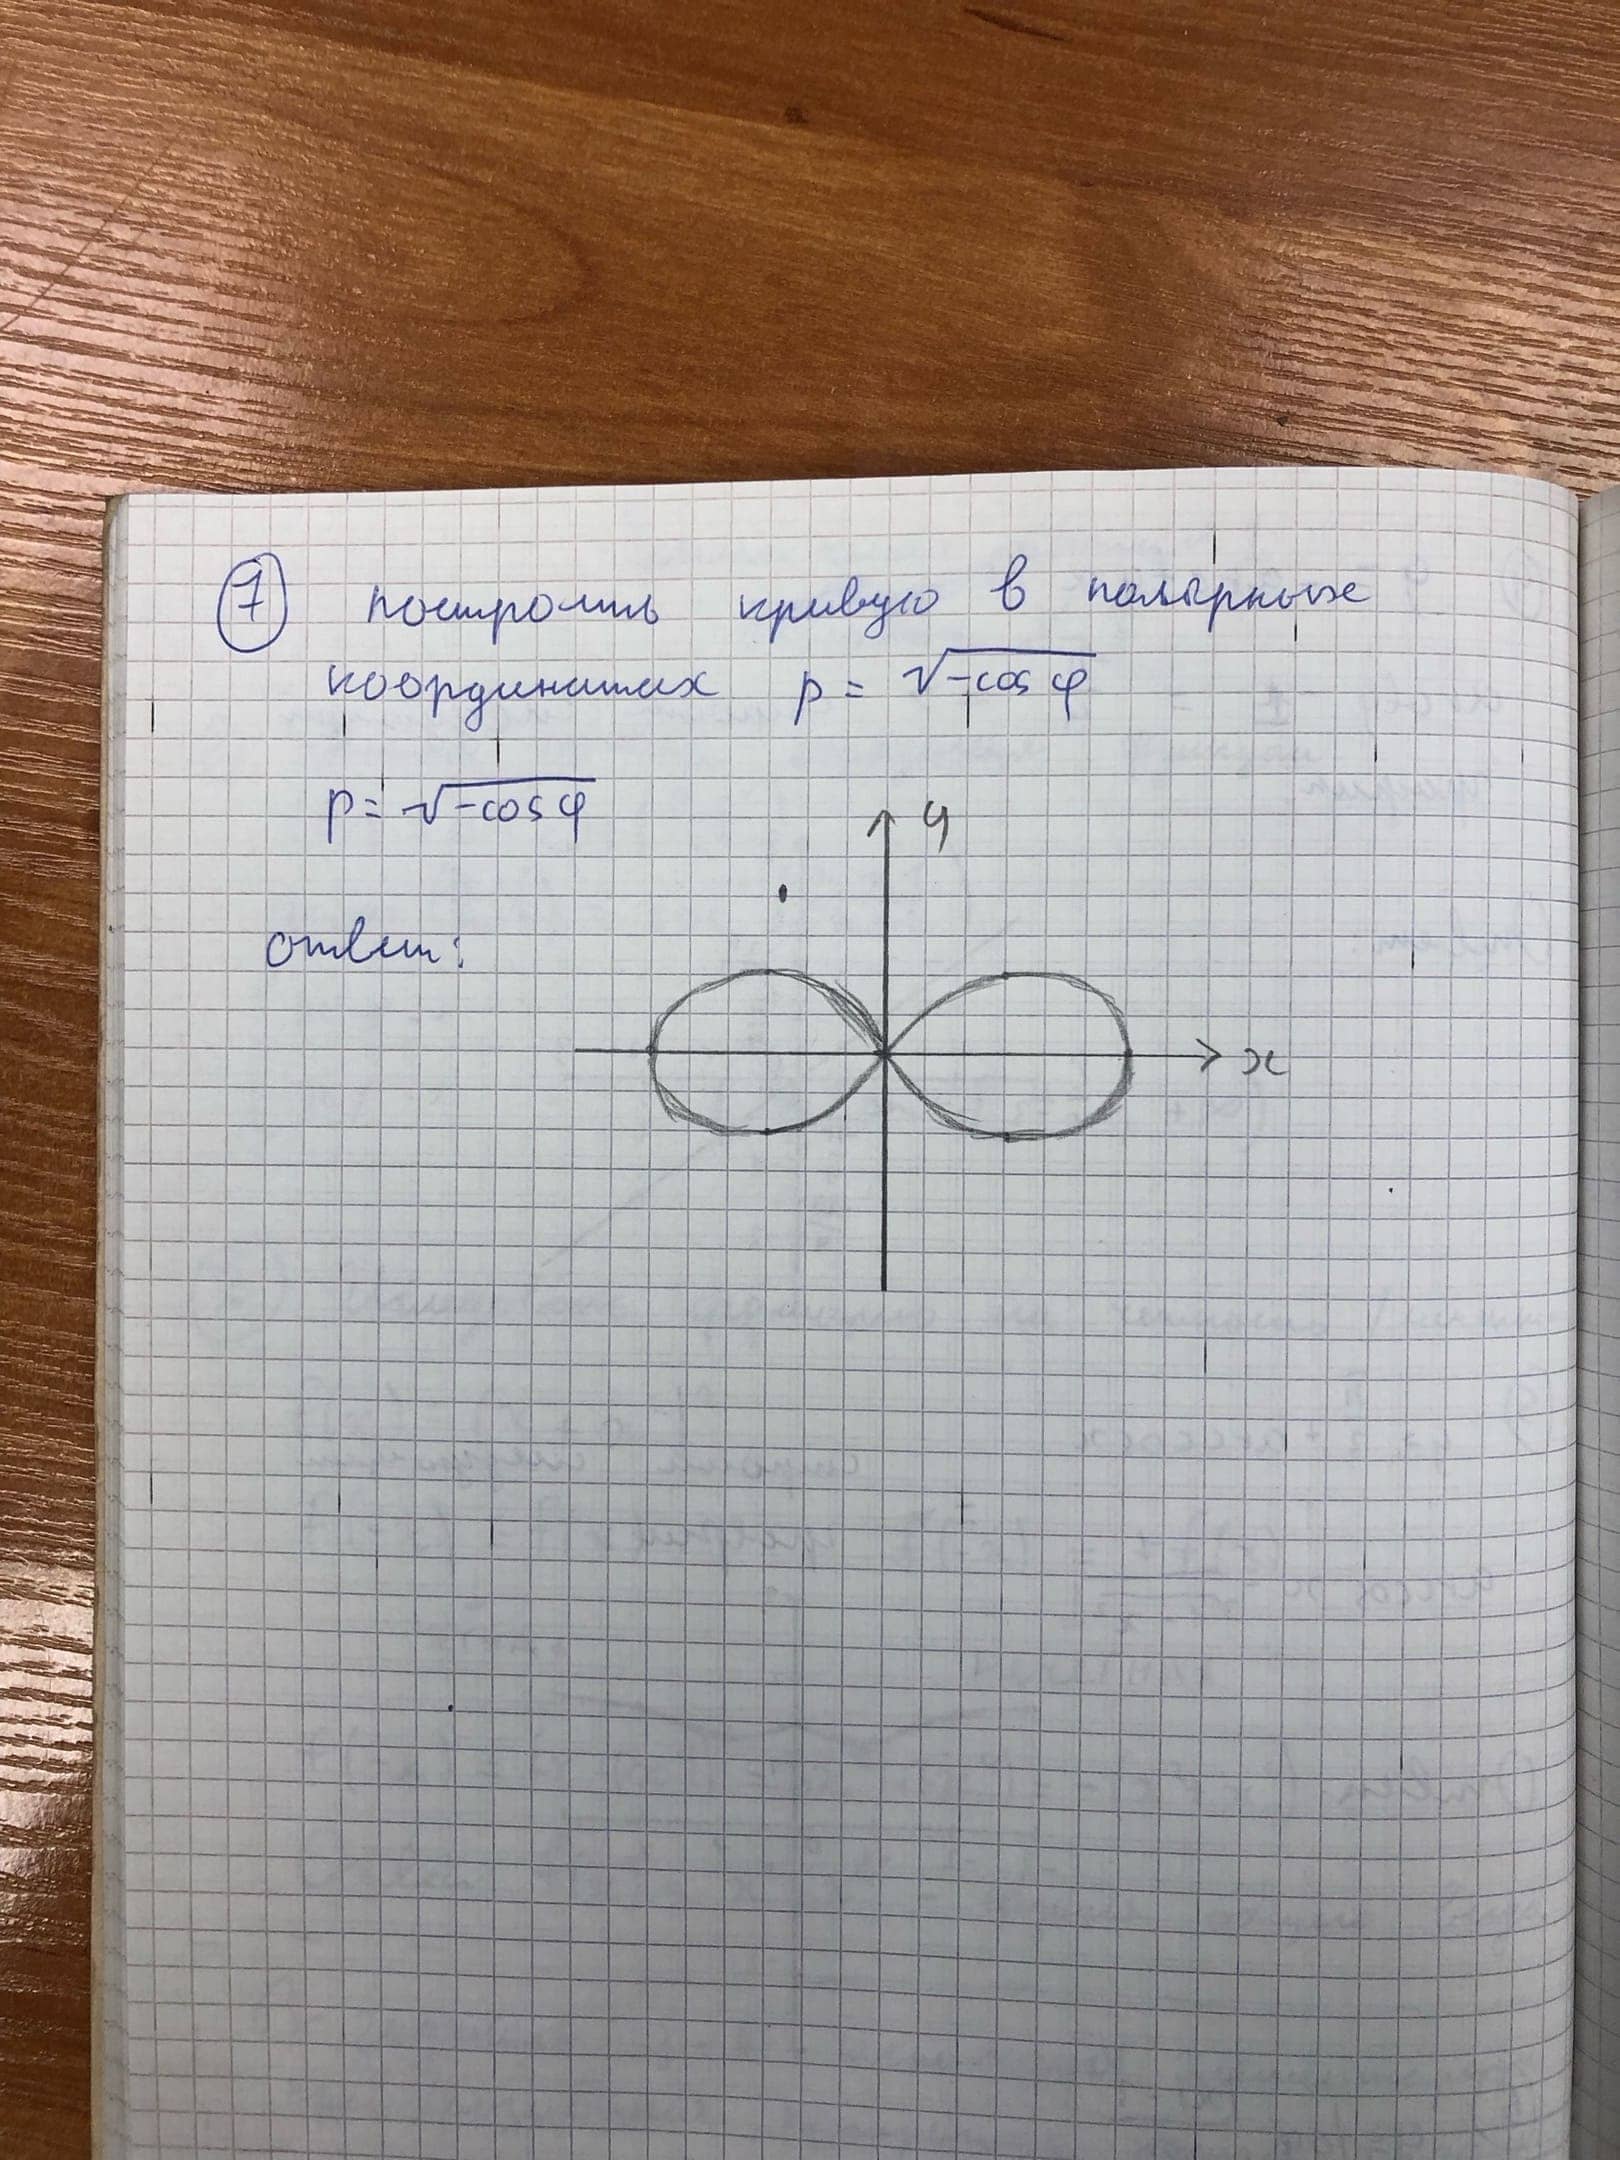 7 построить кривую в полярных
координатах p = √-cos φ
p = √-cos φ
y
ответ:
x